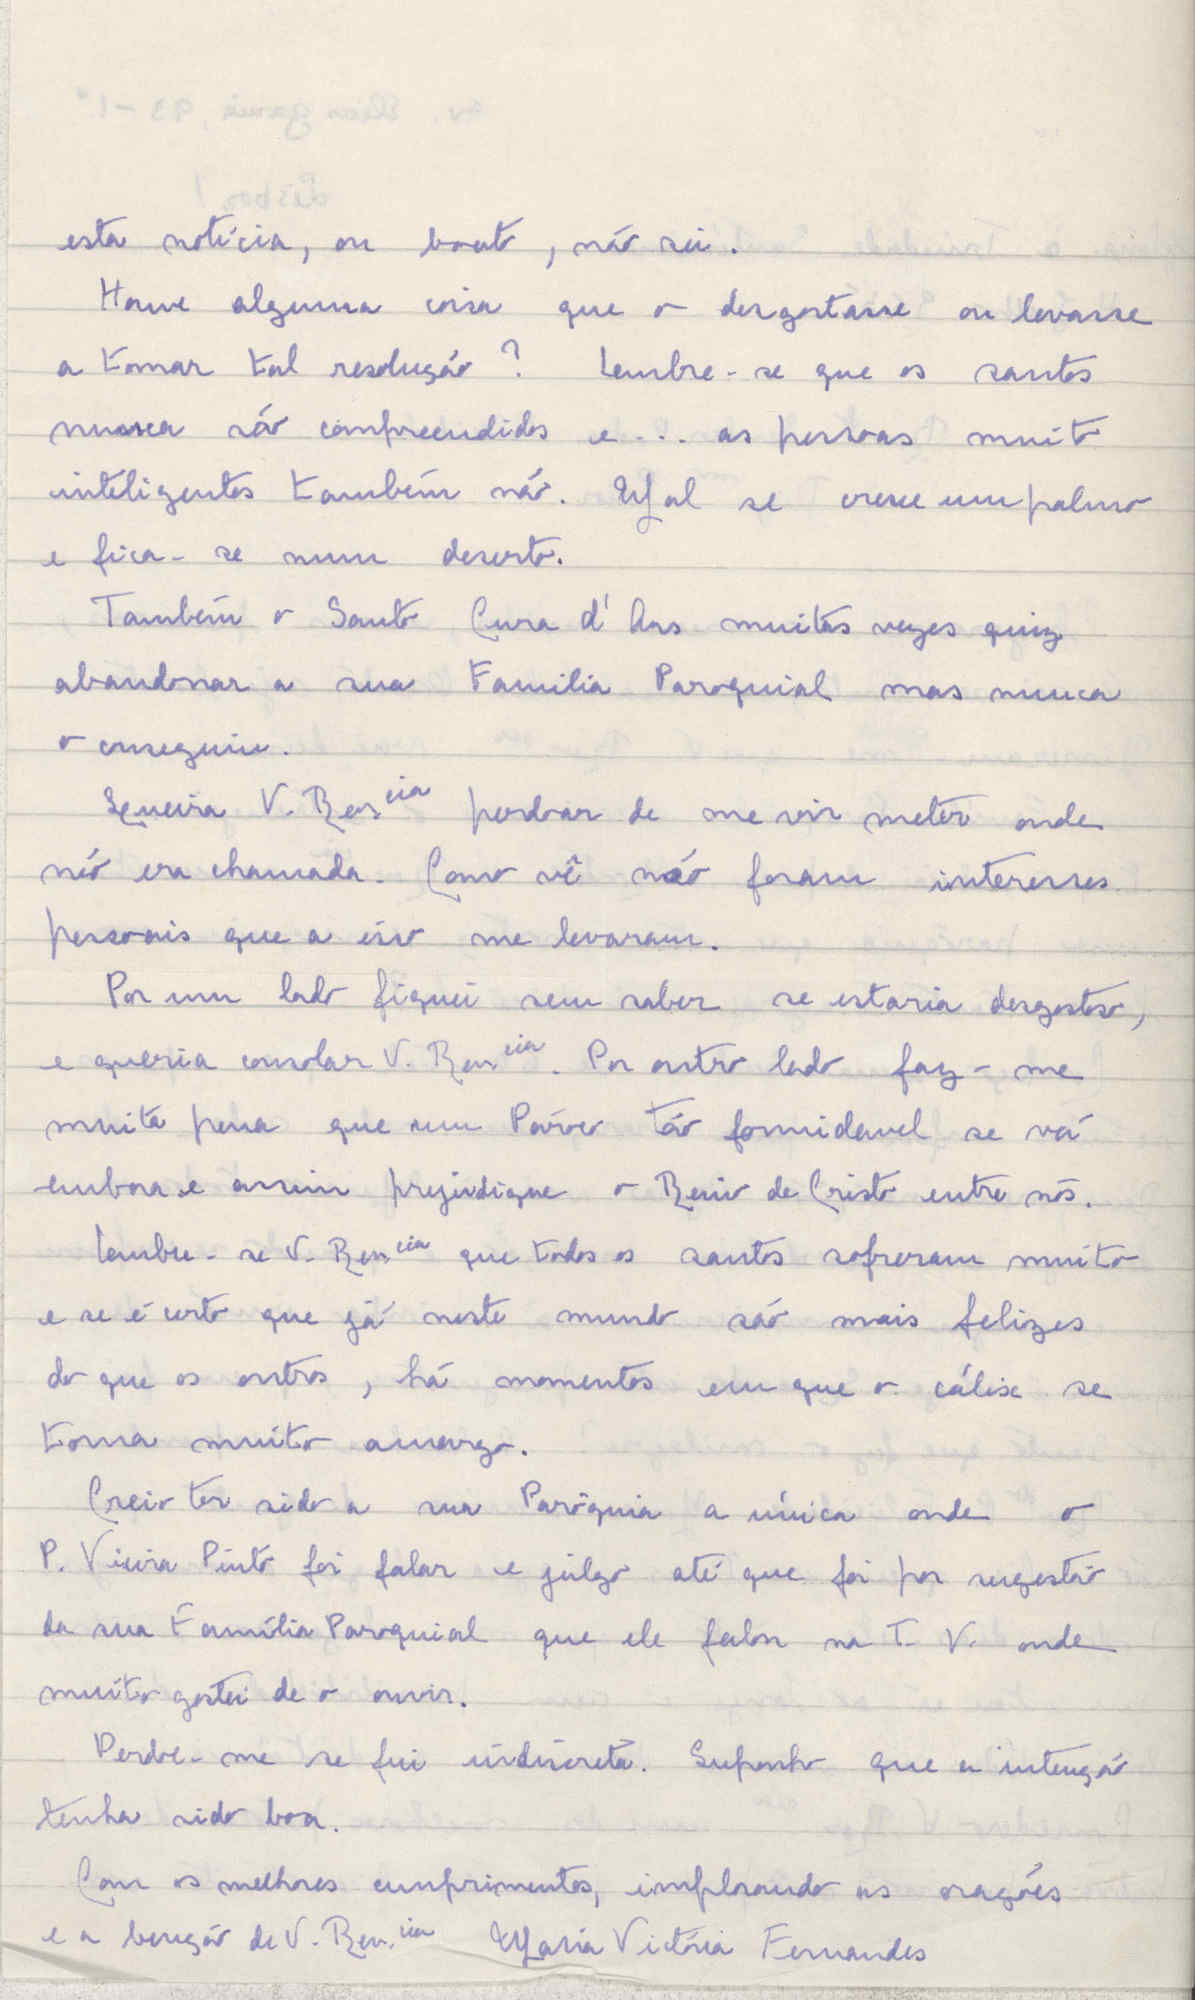 esta notícia, ou boato, não sei.
Houve alguma coisa que o desgostasse ou levasse
a tomar tal resolução? Lembre-se que os santos
nunca são compreendidos e... as pessoas muito
inteligentes também não. Mal se cresce um palmo
e fica-se num deserto.
Também o Santo Cura d'Ars muitas vezes quiz
abandonar a sua Familia Paroquial mas nunca
o conseguiu.
Queira V. Rev.cia perdoar de me vir meter onde
não era chamada. Como vê não foram interesses
pessoais que a isso me levaram.
Por um lado fiquei sem saber se estaria desgostoso,
e queria consolar V. Rev.cia. Por outro lado faz-me
muita pena que um Pároco tão formidavel se vá
embora e assim prejudique o Reino de Cristo entre nós.
Lembre-se V. Rev.cia que todos os santos sofreram muito
e se é certo que já neste mundo são mais felizes
do que os outros, há momentos em que o cálix se
torna muito amargo.
Creio ter sido a sua Paróquia a única onde o
P. Vieira Pinto foi falar e julgo até que foi por sugestão
da sua Família Paroquial que ele falou na T.V. onde
muito gostei de o ouvir.
Perdoe-me se fui indiscreta. Suponho que a intenção
tenha sido boa.
Com os melhores cumprimentos, implorando as orações
e a benção de V. Rev.cia Maria Victória Fernandes